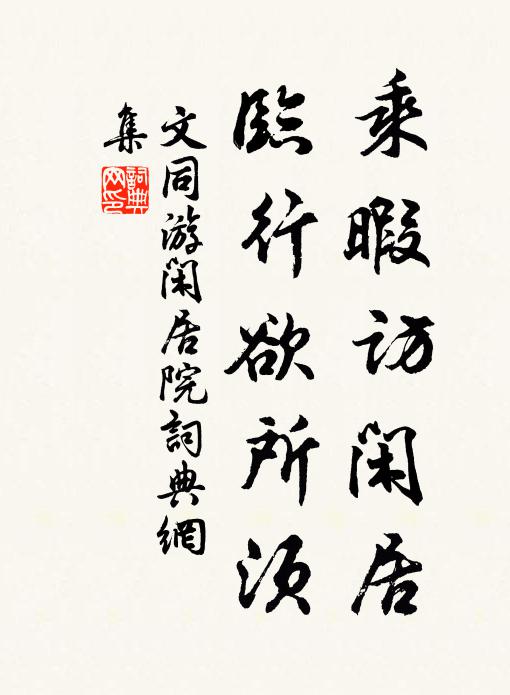 乘暇访闲居
临行欲所须
文同游闲居院詞典網
集
詞典
网印